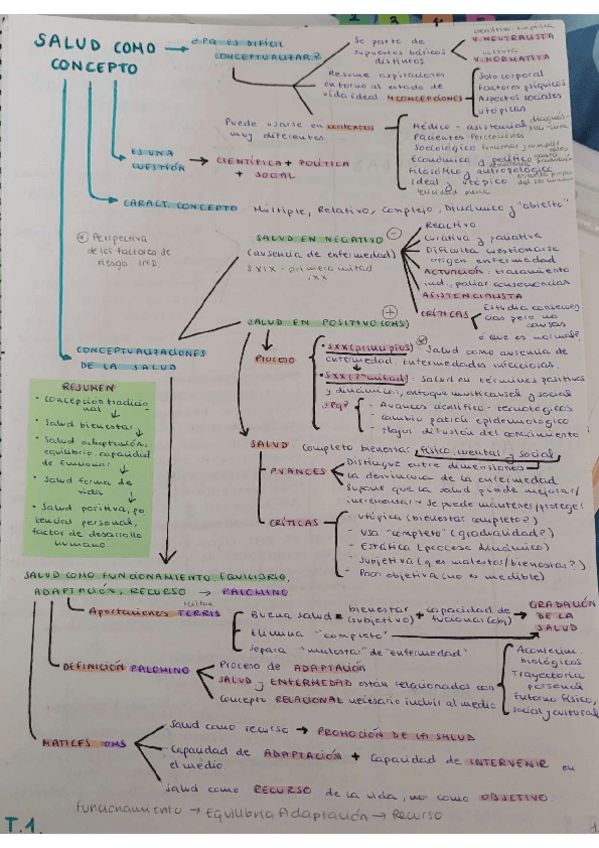 SALUD COMO CONCEPTO
¿Pq ES DIFÍCIL CONCEPTUALIZAR?
Se parte de supuestos básicos distintos
V. NEUTRALISTA
V. NORMATIVA
Resume aspiraciones en torno al estado de vida ideal 4 CONCEPCIONES
Solo corporal
Factores psíquicos
Aspectos sociales
utópicas
Puede usarse en contextos muy diferentes
Médico - asistencial
Pacientes
Sociológico
Económico y político
Filosófico y antropológico
Ideal y utópico
ES UNA CUESTIÓN
CIENTÍFICA + POLÍTICA + SOCIAL
CARACT. CONCEPTO
Múltiple, Relativo, Complejo, Dinámico y "abierto"
Perspectiva de los factores de riesgo IND.
SALUD EN NEGATIVO
(ausencia de enfermedad)
SXIX - primera mitad SXX
Reactivo
Curativa y paliativa
Dificulta cuestionarse origen enfermedad
ACTUACIÓN: tratamiento ind., paliar consecuencias
ASISTENCIALISTA
CRÍTICAS
Estudia consecuencias pero no causas
¿ qué es normal?
CONCEPTUALIZACIONES DE LA SALUD
SALUD EN POSITIVO (OMS)
PROCESO
• SXX (principios) Salud como ausencia de enfermedad. Enfermedades infecciosas.
• SXX (2ª mitad): Salud en términos positivos y dinámicos, enfoque multicausal y social
¿Pq?
- Avances científico - tecnológicos
- Cambio patrón epidemiológico
- Mayor difusión del conocimiento
RESUMEN
• Concepción tradicional
• Salud bienestar
• Salud adaptación, equilibrio, capacidad de funcionar
• Salud forma de vida
• Salud positiva, potencial personal, factor de desarrollo humano
SALUD: Completo bienestar físico, mental y social
AVANCES
Distingue entre dimensiones
La desvincula de la enfermedad
Supone que la salud puede mejorar/incrementar y se puede mantener/proteger
CRÍTICAS
- Utópica (bienestar completo?)
- Usa "completo" (gradualidad?)
- Estática (proceso dinámico)
- Subjetiva (q es malestar/bienestar?)
- Poco objetiva (no es medible)
SALUD COMO FUNCIONAMIENTO, EQUILIBRIO, ADAPTACIÓN, RECURSO → PALOMINO
Aportaciones Milton TERRIS
Buena salud = bienestar (subjetivo) + capacidad de funcionar (obj)
Elimina "completo"
GRADACIÓN DE LA SALUD
Separa "malestar" de "enfermedad"
DEFINICIÓN PALOMINO
Proceso de ADAPTACIÓN
SALUD y ENFERMEDAD están relacionados con
Concepto RELACIONAL necesario incluir al medio
Acontecim. biológicos
Trayectoria personal
Entorno físico, social y cultural
MATICES OMS
Salud como recurso → PROMOCIÓN DE LA SALUD
Capacidad de ADAPTACIÓN + Capacidad de INTERVENIR en el medio
Salud como RECURSO de la vida, no como OBJETIVO.
Funcionamiento → Equilibrio Adaptación → Recurso
T.1.
1